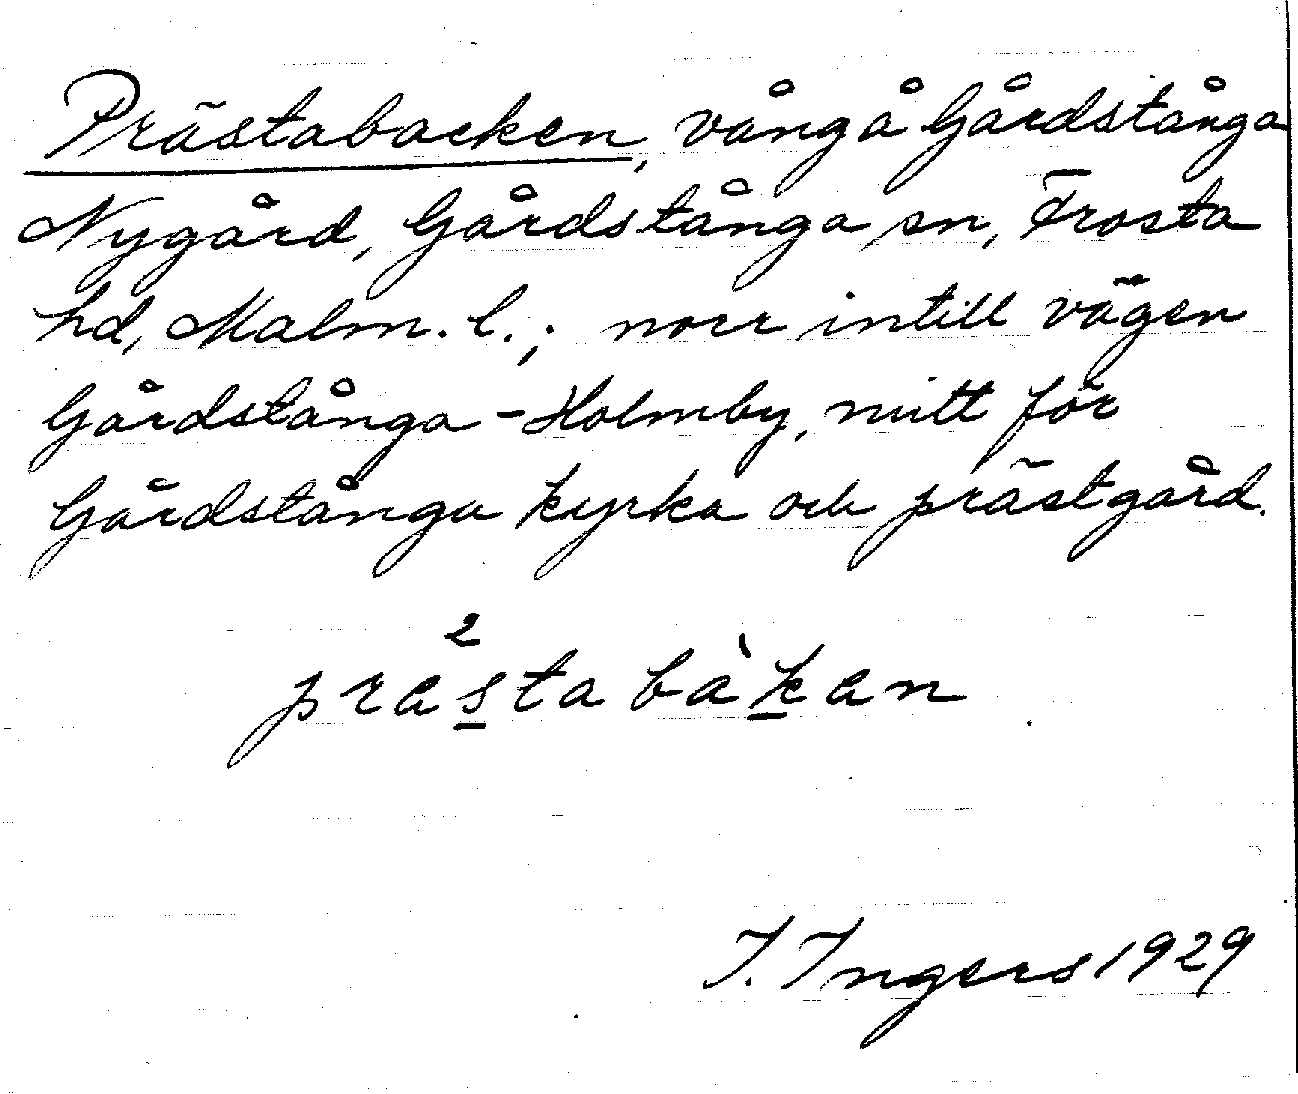 Prästabacken, vång å Gårdstånga
Nygård, Gårdstånga sn, Frosta
hd, Malm. l.; norr intill vägen
Gårdstånga - Holmby, mitt för
Gårdstånga kyrka och prästgård.
2
præsta bàkan
I. Ingers 1929